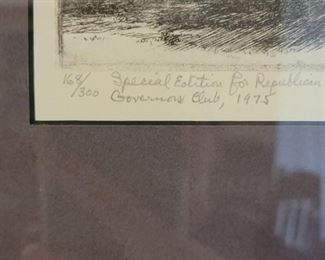 168/300 Special Edition for Republican
Governors Club, 1975